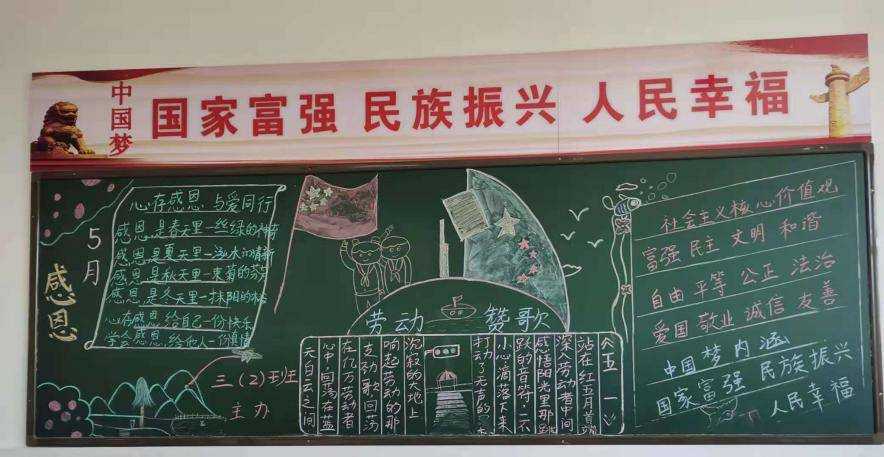 中国梦
国家富强 民族振兴 人民幸福
5月
感恩
心存感恩 与爱同行
感恩是春天里一丝绿的神奇
感恩是夏天里一泓水的清新
感恩是秋天里一束菊的芬芳
感恩是冬天里一抹阳的
心存感恩给自己一份快乐
学会感恩给他人一份真情
三(2)班
主办
劳动 赞歌
《五一》
站在红五月首端
深入劳动者中间
感悟阳光里那跳
跃的音符 不
小心滴落下来
打动了无声的
沉寂的大地上
响起劳动的那
支动歌回荡
在亿万劳动者
心中回荡在蓝
天白云之间
社会主义核心价值观
富强 民主 文明 和谐
自由 平等 公正 法治
爱国 敬业 诚信 友善
中国梦内涵
国家富强 民族振兴
人民幸福